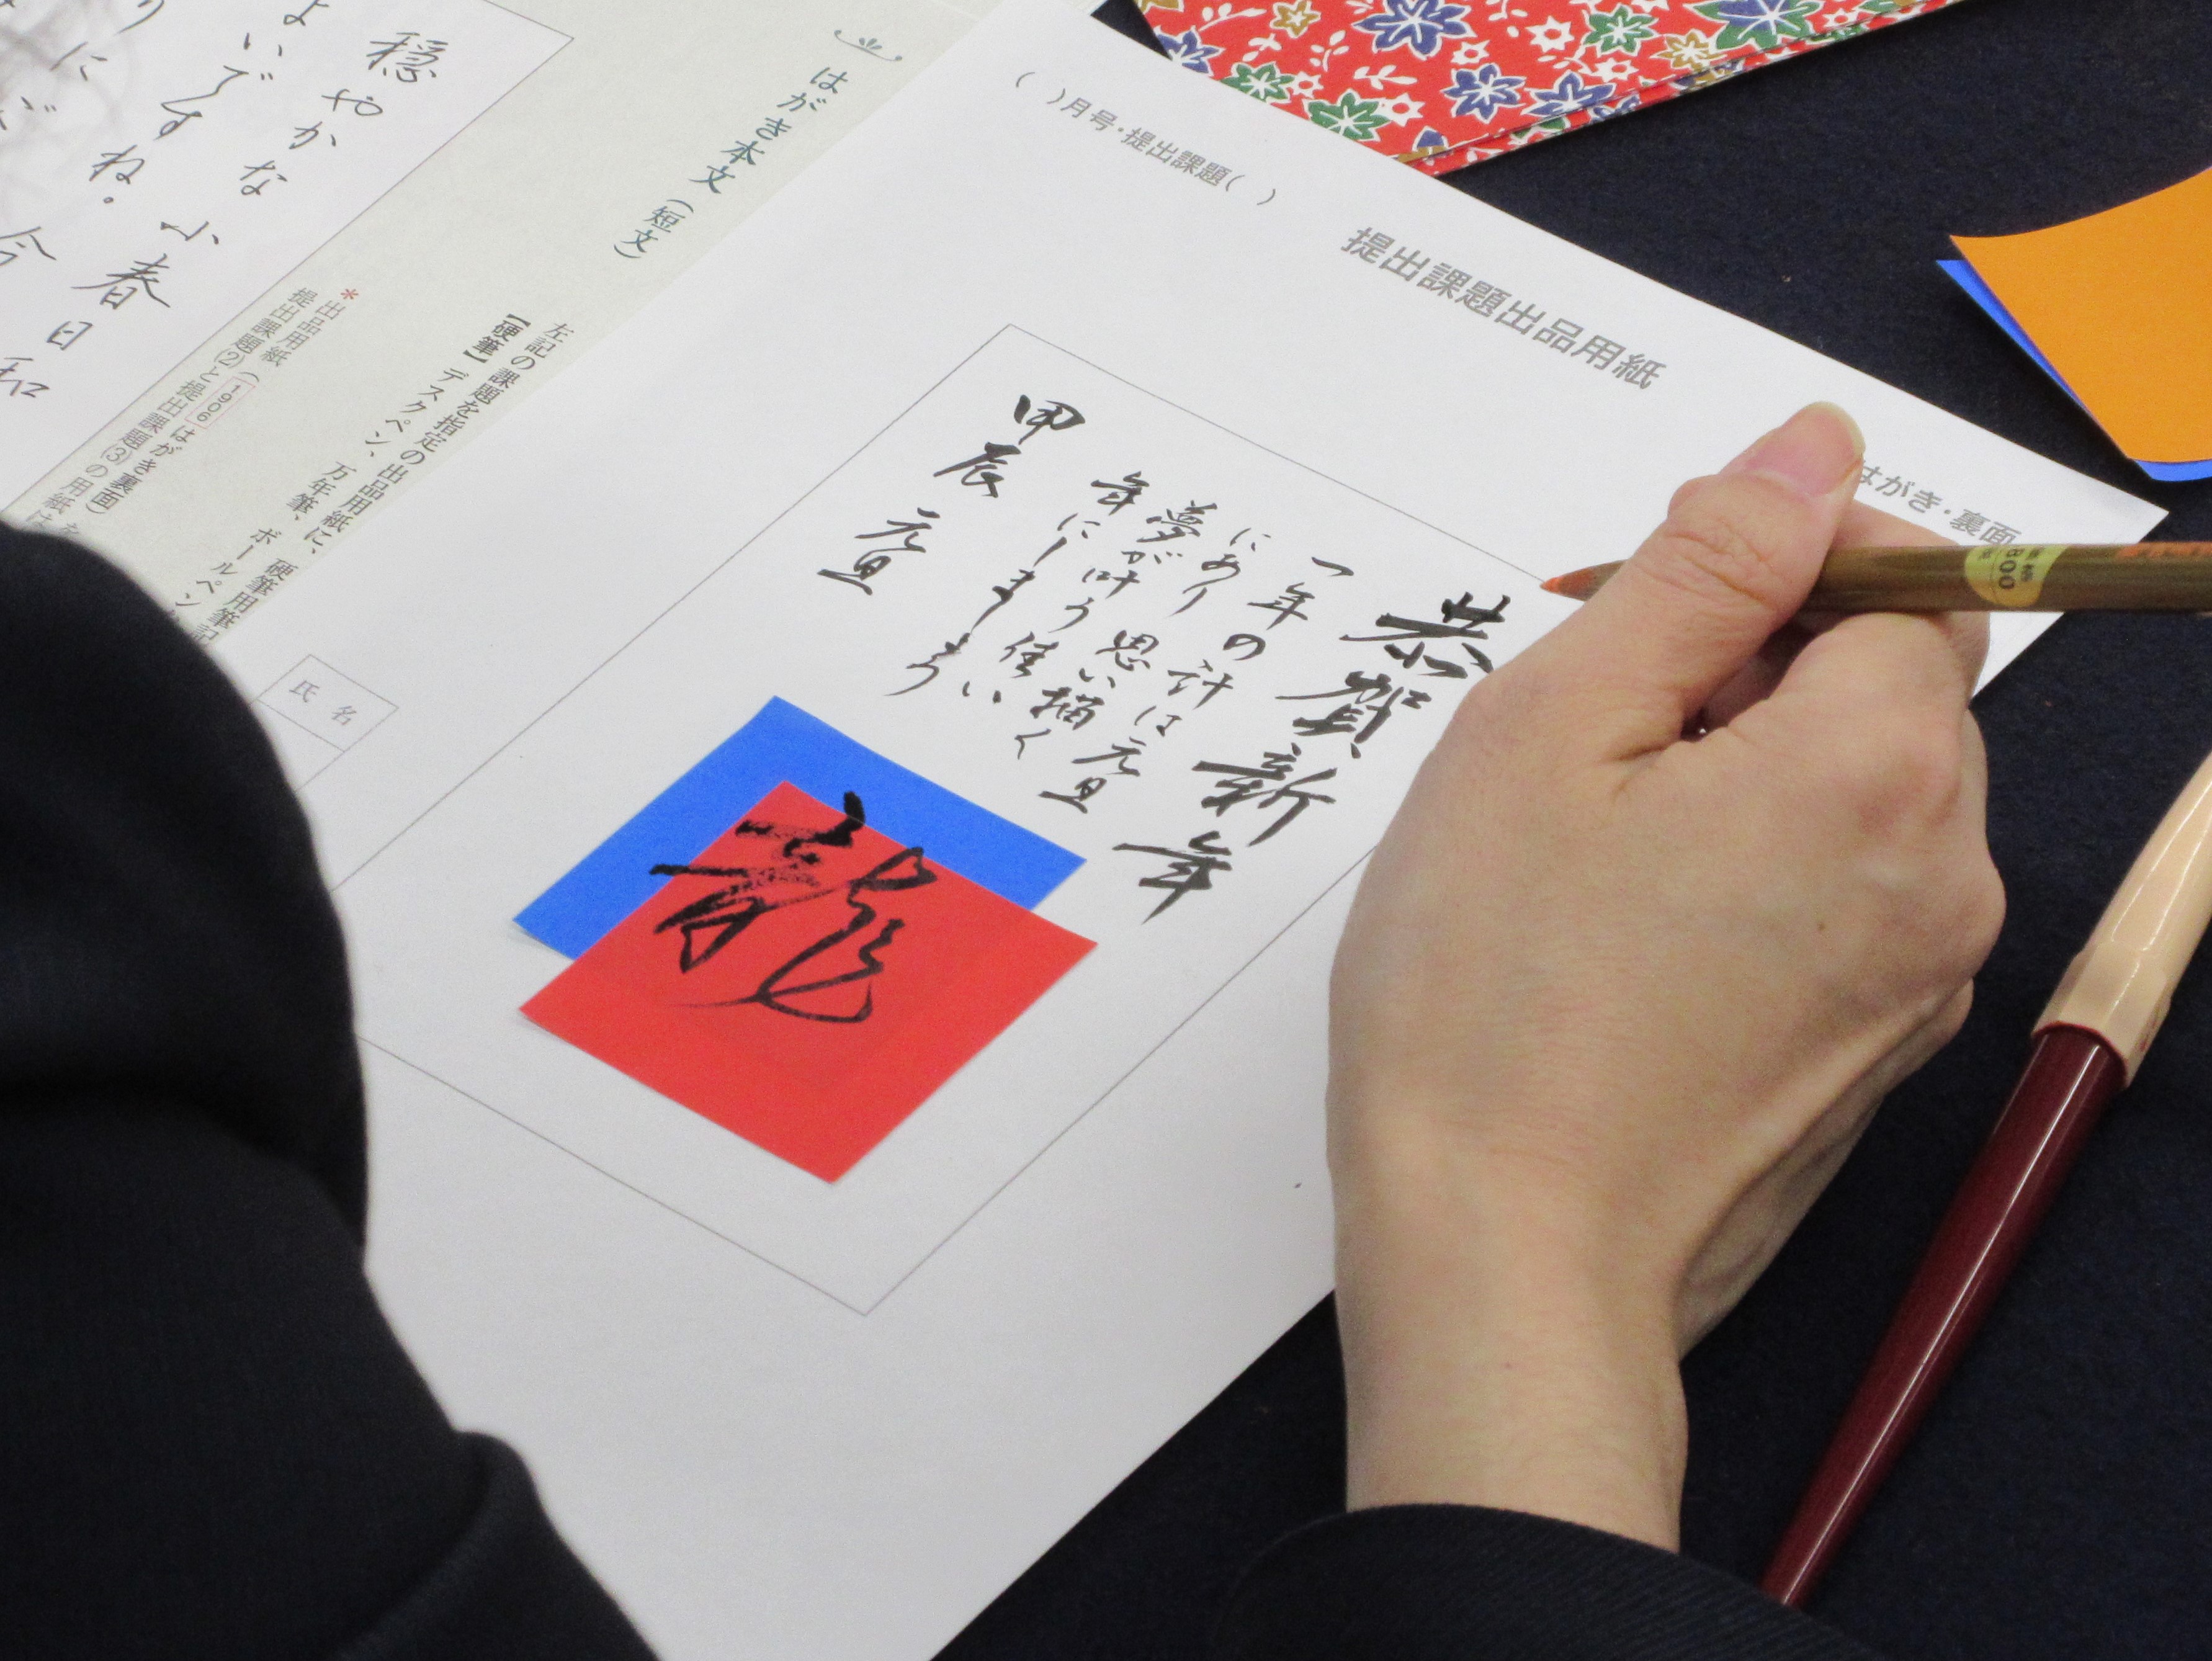 ( )月号・提出課題( )
提出課題出品用紙
はがき・裏面
恭賀新年
一年の計は元旦
にあり 思い描く
夢が叶う佳い
年にしましょう
甲辰 元旦
龍
氏名
はがき本文(短文)
左記の課題を指定の出品用紙に、硬筆用筆記
【硬筆】デスクペン、万年筆、ボールペン
*出品用紙(1906 はがき裏面)
提出課題(2)と提出課題(3)の用紙は
穏やかな小春日和
よいですね。今
800